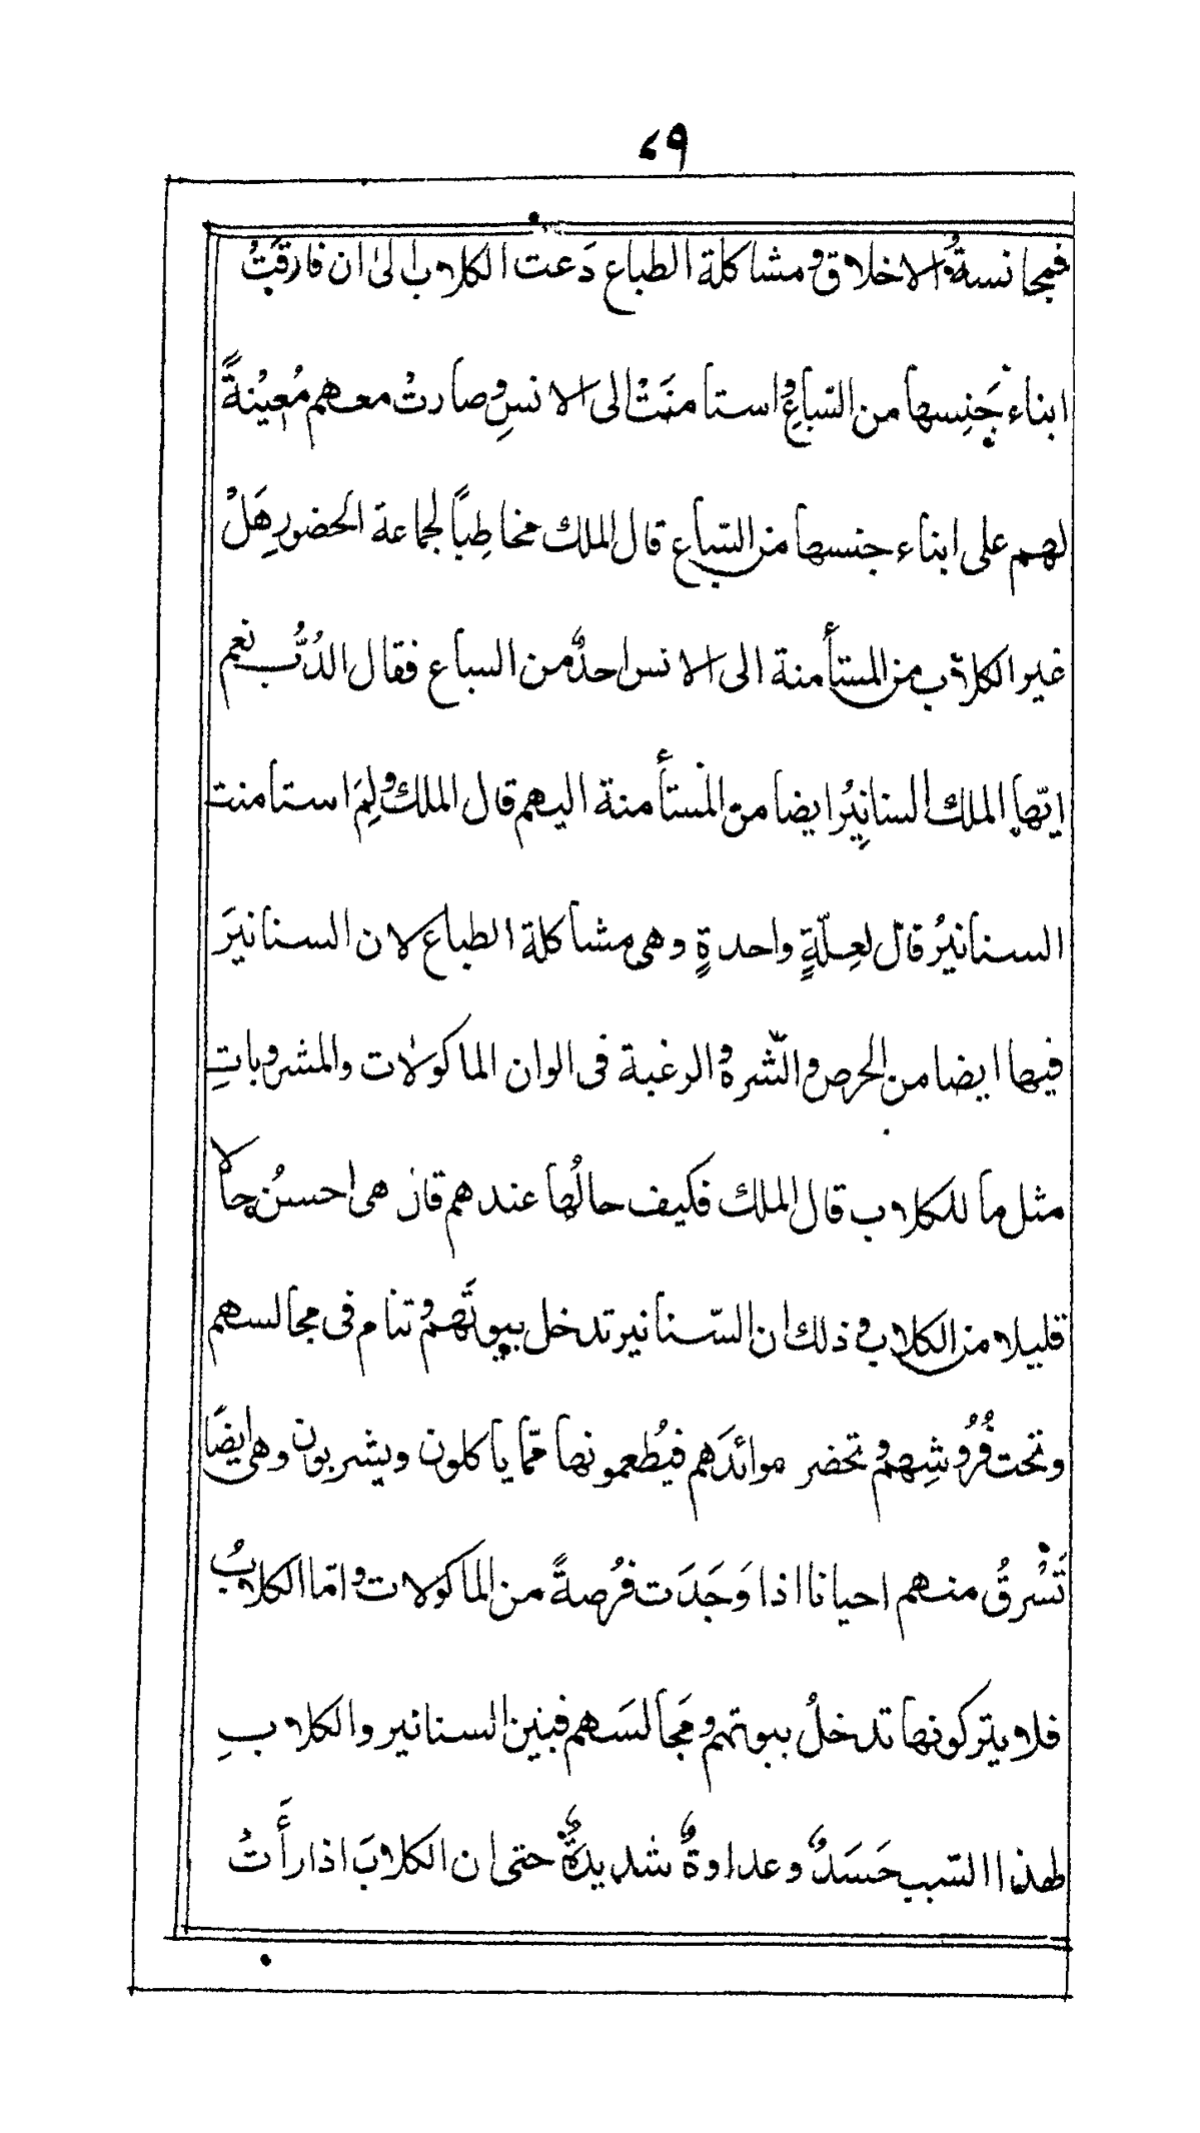 ٤٩
فمجانسةُ الاخلاق ومشاكلة الطباع دَعت الكلاب الىٰ ان فارقَتْ
ابناء جَنِسها من السّباعِ واستامنَتْ الى الانسِ وصارتْ معهم مُعِيْنةً
لهم على ابناء جنسها من السّباع قال الملك مخاطِبًا لجماعة الحضورِ هَلْ
غير الكلاب من المستأمنة الى الانس احدٌ من السباع فقال الدُبُّ نعم
ايّها الملك السنانِيرُ ايضا من المستأمنة اليهم قال الملك ولِمَ استامنت
السنانيرُ قال لعِلّةٍ واحدةٍ وهى مشاكلة الطباع لان السنانيرَ
فيها ايضا من الحرص والشّره والرغبة فى الوان الماكولات والمشروباتِ
مثل ما للكلاب قال الملك فكيف حالُها عندهم قال هى احسنُ حالا
قليلا من الكلاب وذلك ان السّنانير تدخل بيوتَهم وتنام فى مجالسهم
وتحت فُرُوشِهم وتحضر موائدَهم فيُطعمونها ممّا ياكلون ويشربون وهى ايضًا
تَسْرقُ منهم احيانا اذا وَجَدَت فُرصةً من الماكولات وامّا الكلابُ
فلا يتركونها تدخلُ بيوتهم ومَجالسَهم فبين السنانير والكلابِ
لهذا السّبب حَسَدٌ وعداوةٌ شديدةٌ حتى ان الكلابَ اذا رأَتْ